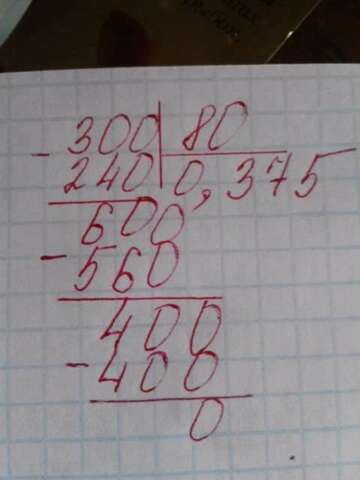 - 300 80
240 0,375
600
- 560
400
- 400
0